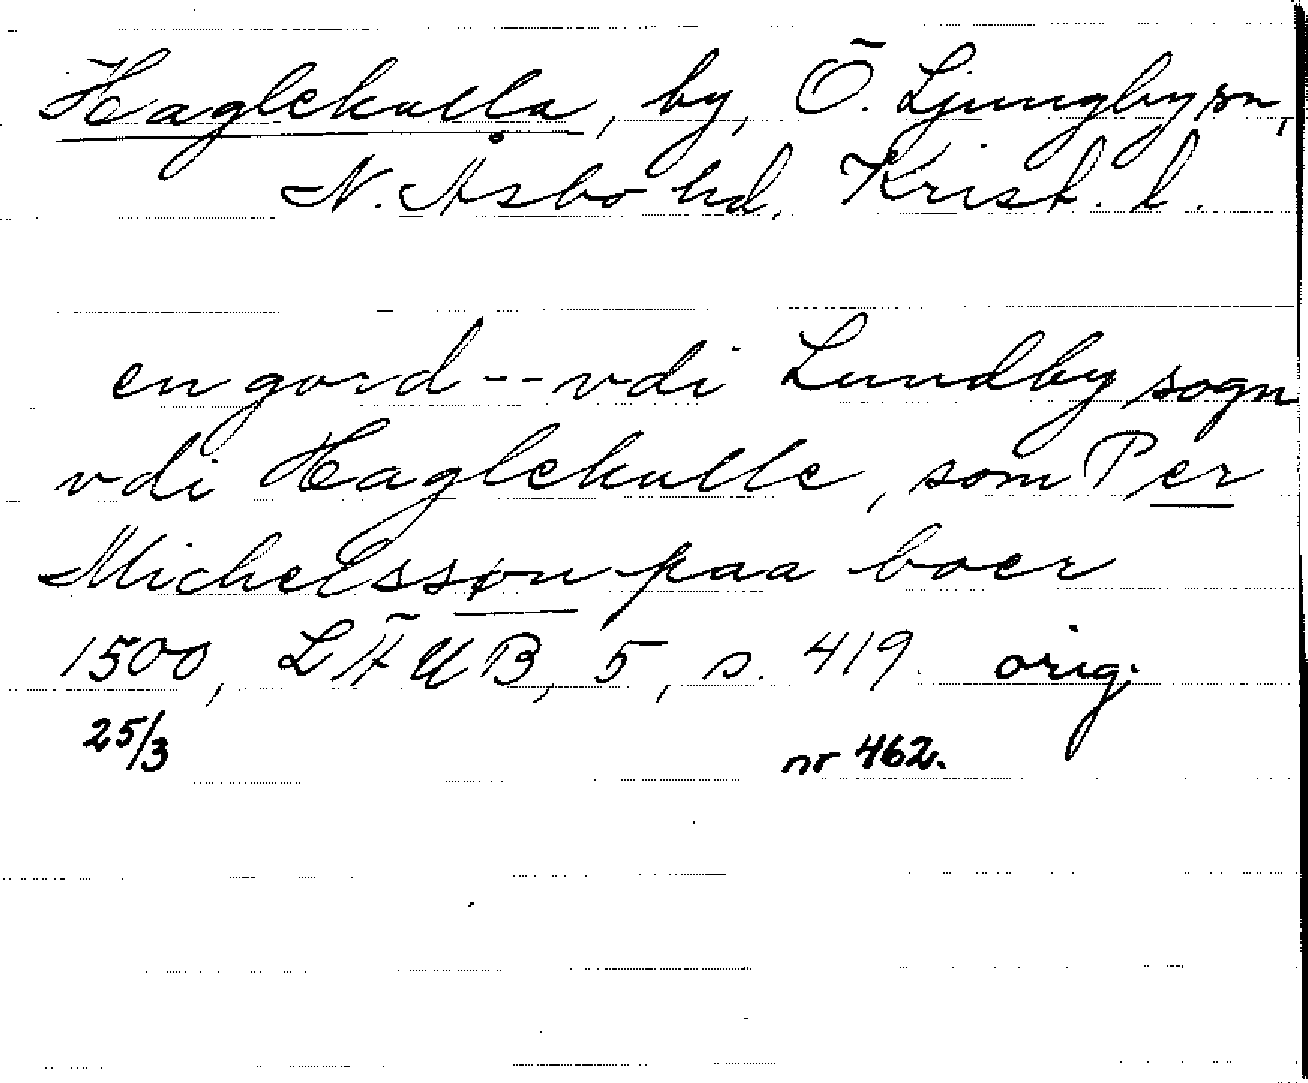 Haglekulla, by, Ö. Ljungby sn,
N. Åsbo hd, Krist. l.
en gord -- vdi Lundby sogn
vdi Haglekulle, som Per
Michelssøn paa boer
1500, LÄUB, 5, s. 419. orig.
25/3 nr 462.